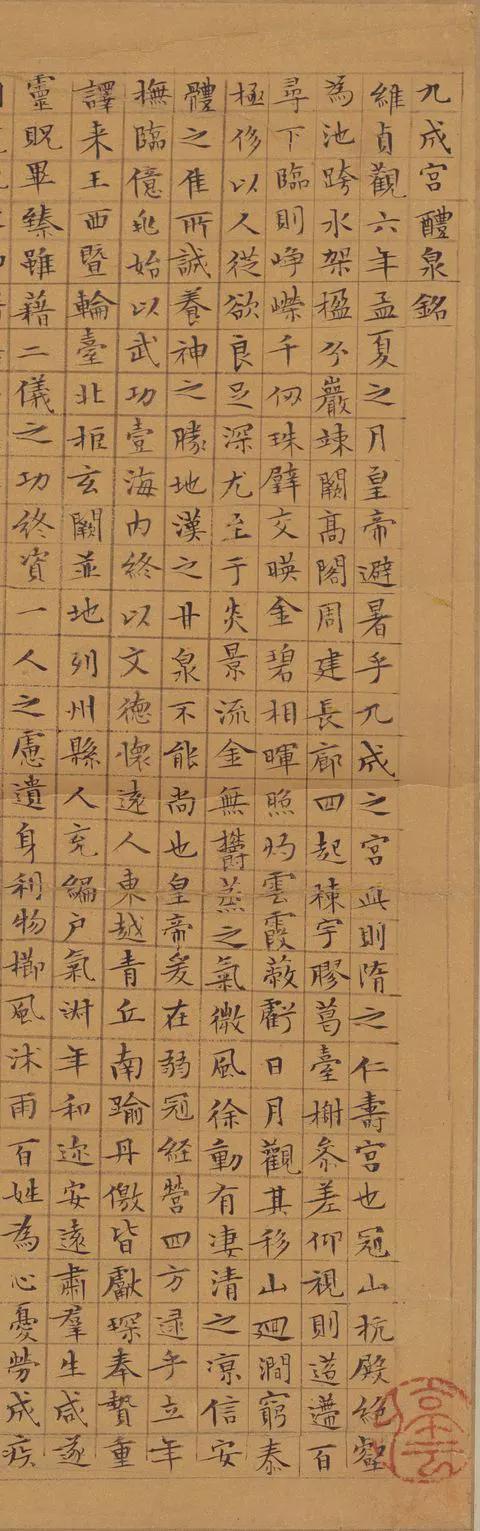 九成宮醴泉銘
維貞觀六年孟夏之月皇帝避暑乎九成之宮此則隋之仁壽宮也冠山抗殿絕壑
為池跨水架楹分巖竦闕高閣周建長廊四起棟宇膠葛臺榭參差仰視則迢遰百
尋下臨則崢嶸千仞珠璧交暎金碧相暉照灼雲霞蔽虧日月觀其移山迴澗窮泰
極侈以人從欲良足深尤至于炎景流金無鬱蒸之氣微風徐動有凄清之涼信安
體之佳所誠養神之勝地漢之甘泉不能尚也皇帝爰在弱冠經營四方逮乎立年
撫臨億兆始以武功壹海內終以文德懷遠人東越青丘南踰丹儌皆獻琛奉贄重
譯来王西暨輪臺北拒玄闕並地列州縣人充編戶氣淑年和迩安遠肅羣生咸遂
靈貺畢臻雖藉二儀之功終資一人之慮遺身利物櫛風沐雨百姓為心憂勞成疾